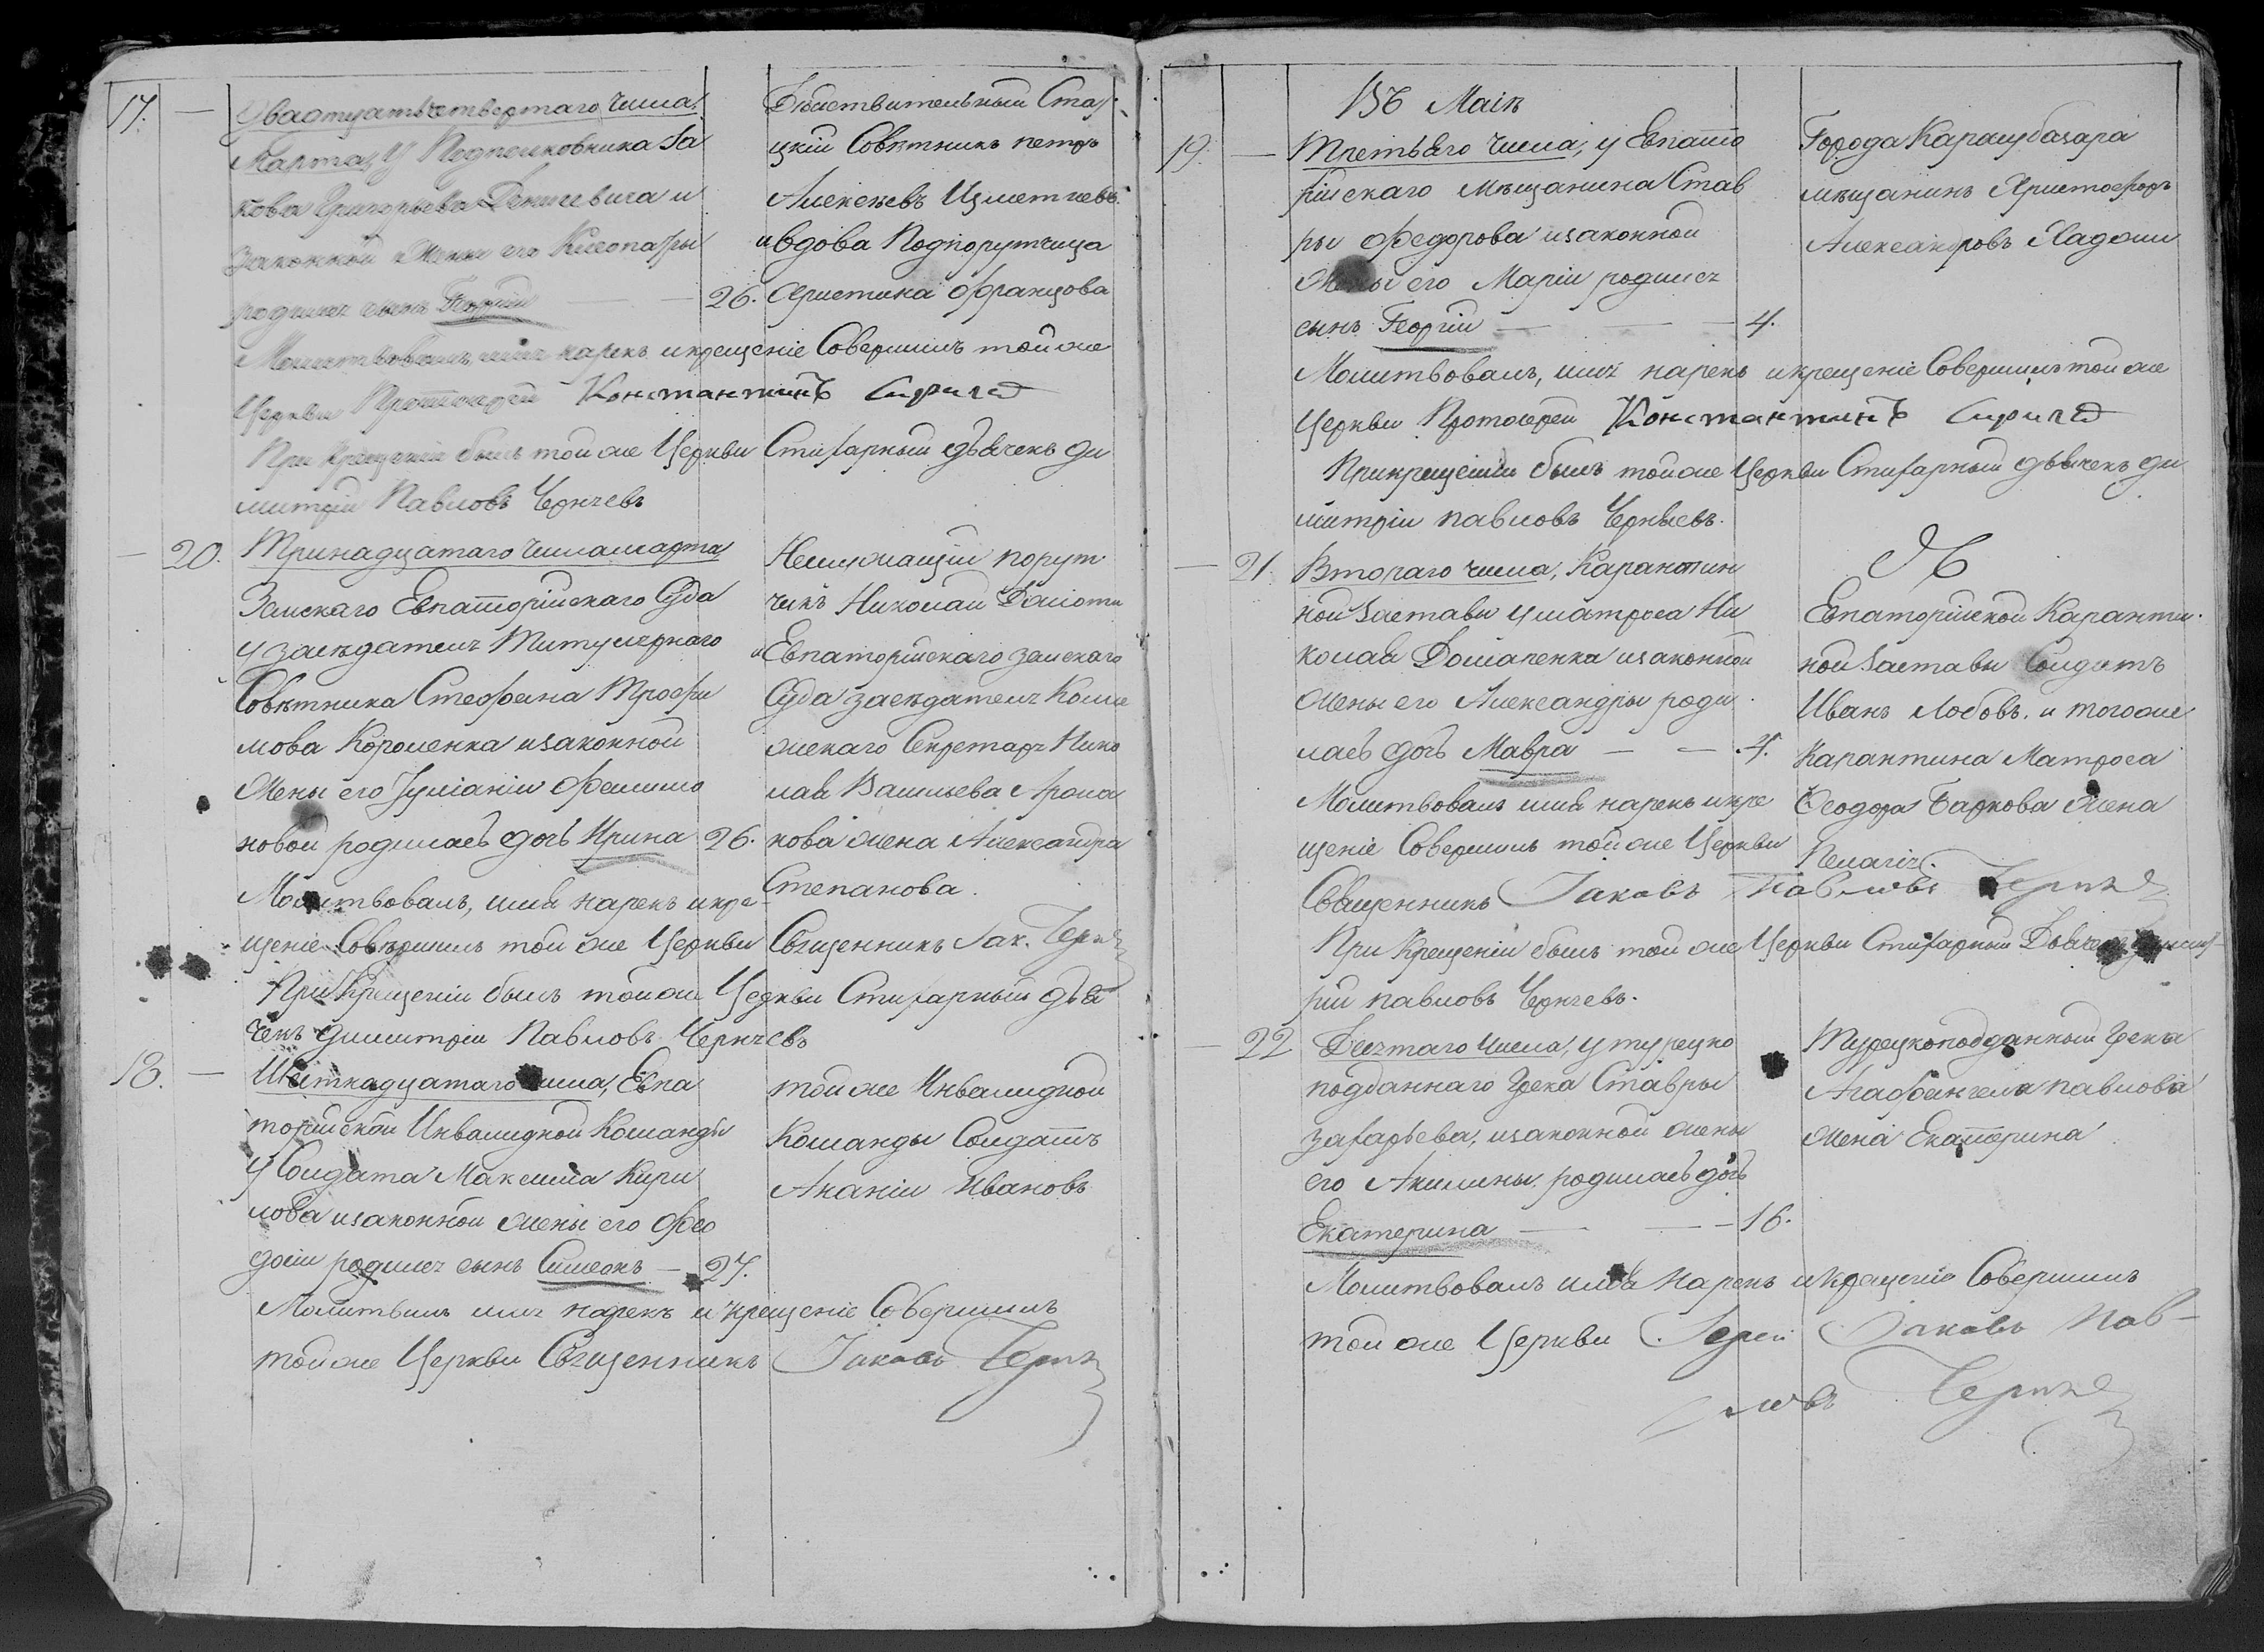 17. — Двадцать четвертаго числа
Марта, У Подполковника Іа
кова Григорьева и
законной жены его Клеопатры
родился сынъ Георгій — 26.
Действительный Стат
скій Совѣтникъ петръ
Алексѣевъ
и вдова Подпорутчица
Христина Францова
Молитвовалъ, имя нарекъ и крещеніе Совершилъ той же
Церкви Протоіерей Константинъ
При крещеніи былъ той же Церкви Стихарный дьячекъ ди
митрій Павловъ Чернѧевъ
— 20. Тринадцатаго числа марта
Земскаго Евпаторійскаго Суда
у засѣдателя Титулярнаго
Совѣтника Стефана Трофи
мова Короленка и законной
жены его Іуліаніи Филимо
новой родилась дочь Ирина 26.
Неслужащій порут
чикъ Николай
и Евпаторійскаго земскаго
Суда засѣдателя Колле
жскаго Секретаря Нико
лая Васильева
кова жена Александра
Степанова.
Молитвовалъ, имя нарекъ и кре
щеніе Совѣршилъ той же Церкви Свѧщенникъ Іак. Черн
При Крещеніи былъ той же Церкви Стихарный дья
чекъ димитрій Павловъ Чернѧевъ
18. — Шестнадцатаго числа, Евпа
торійской Инвалидной Команды
у Солдата Максима Кири
лова и законной жены его Фео
досіи родился сынъ Симеонъ — 27.
той же Инвалидной
Команды Солдатъ
Ананій Ивановъ
Молитвилъ имя нарекъ и крещеніе Совершилъ
той же Церкви Свѧщенникъ Іаковъ Черн
Въ Маіѣ
19. — Третьяго числа, у Евпато
рійскаго Мѣщанина Став
ры Федорова и законной
жены его Маріи родился
сынъ Георгій — 4.
Города Карасубазара
мѣщанинъ Христофоръ
Александровъ
Молитвовалъ, имя нарекъ и крещеніе Совершилъ той же
Церкви Протоіерей Константинъ
При крещеніи былъ той же Церкви Стихарный дьячекъ ди
митрій павловъ Черныевъ.
— 21. Втораго числа, Карантин
ной Заставы у матроса Ни
колая и законной
жены его Александры роди
лась дочь Мавра — 4.
Евпаторійской Каранти
ной Заставы Солдатъ
Иванъ Лобовъ. и тогоже
Карантина Матроса
Ѳеодора Баркова жена
Пелагія.
Молитвовалъ имя нарекъ и кре
щеніе Совершилъ той же Церкви
Священникъ Іаковъ Павловъ
При Крещеніи былъ той же Церкви Стихарный Дьячекъ димит
рій павловъ Чернѧевъ.
— 22 Десятаго числа, у турецко
подданнаго Грека Ставры
Захарьева, и законной жены
его Акилины родилась дочь
Екатерина — 16.
Турецкоподданный Грека
Агафангела павлова
жена Екатерина
Молитвовалъ имя нарекъ и Крещеніе Совершилъ
той же Церкви Іерей Іаковъ Пав-
ловъ